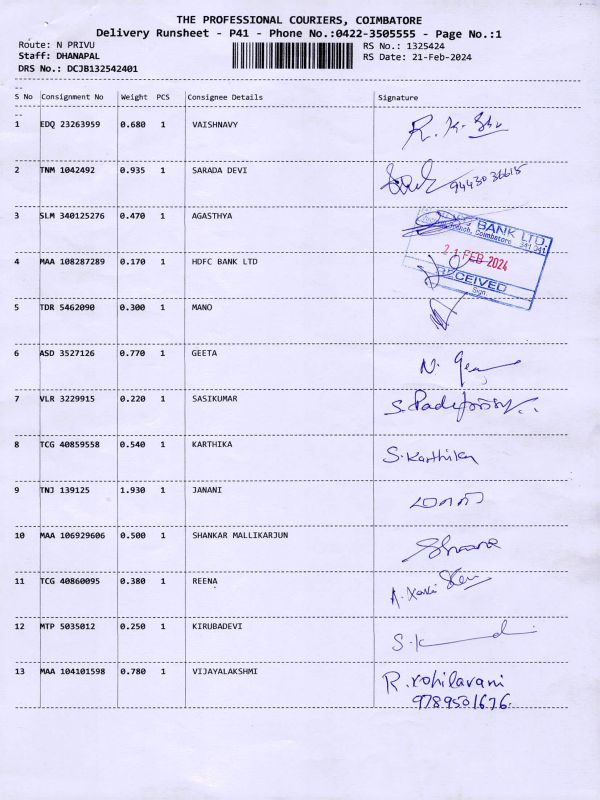 THE PROFESSIONAL COURIERS, COIMBATORE
Delivery Runsheet - P41 - Phone No.:0422-3505555 - Page No.:1
Route: N PRIVU
RS No.: 1325424
Staff: DHANAPAL
RS Date: 21-Feb-2024
DRS No.: DCJB132542401
S No Consignment No Weight PCS Consignee Details Signature
1 EDQ 23263959 0.680 1 VAISHNAVY R. K.
2 TNM 1042492 0.935 1 SARADA DEVI 9443036615
3 SLM 340125276 0.470 1 AGASTHYA
BANK LTD.
Coimbatore 641 041.
21 FEB 2024
RECEIVED
Sign.
4 MAA 108287289 0.170 1 HDFC BANK LTD
5 TDR 5462090 0.300 1 MANO
6 ASD 3527126 0.770 1 GEETA N.
7 VLR 3229915 0.220 1 SASIKUMAR S.
8 TCG 40859558 0.540 1 KARTHIKA S. Karthika
9 TNJ 139125 1.930 1 JANANI
10 MAA 106929606 0.500 1 SHANKAR MALLIKARJUN
11 TCG 40860095 0.380 1 REENA A.
12 MTP 5035012 0.250 1 KIRUBADEVI S.K
13 MAA 104101598 0.780 1 VIJAYALAKSHMI R. Kohilavani
9789501676.